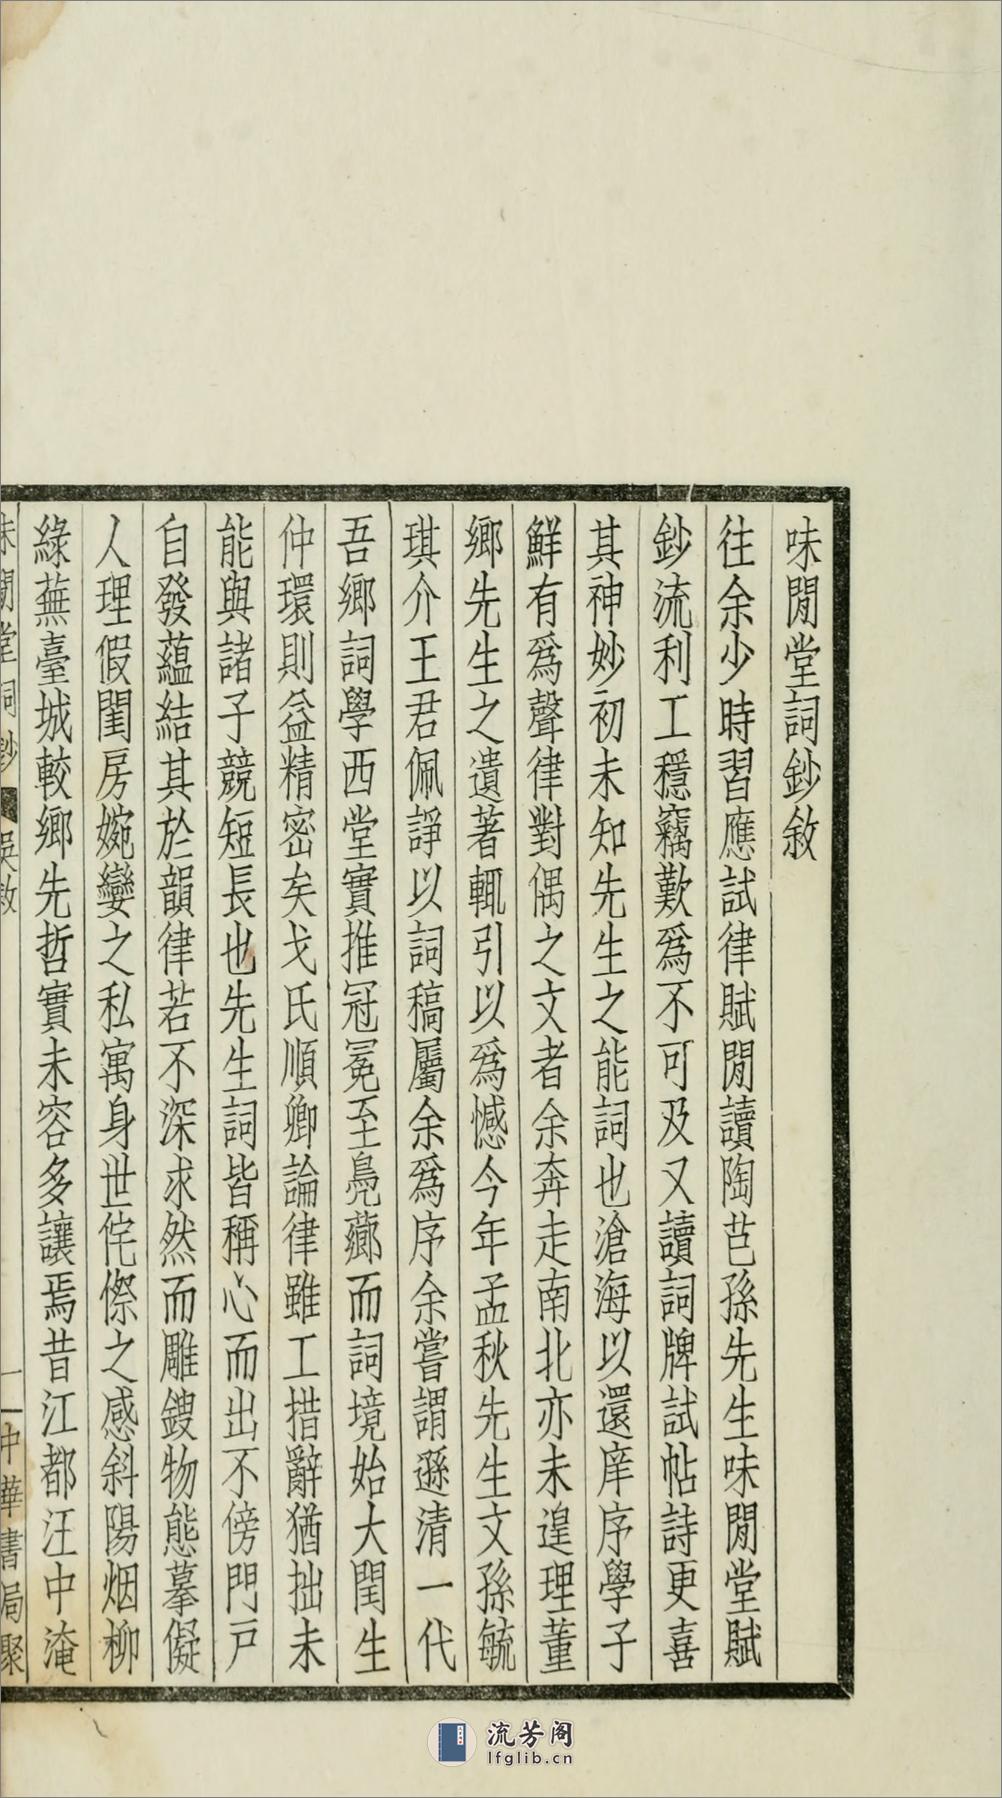 味閒堂詞鈔敘
往余少時習應試律賦閒讀陶芑孫先生味閒堂賦
鈔流利工穩竊歎爲不可及又讀詞牌試帖詩更喜
其神妙初未知先生之能詞也滄海以還庠序學子
鮮有爲聲律對偶之文者余奔走南北亦未遑理董
鄉先生之遺著輒引以爲憾今年孟秋先生文孫毓
琪介王君佩諍以詞稿屬余爲序余嘗謂遜清一代
吾鄉詞學西堂實推冠冕至鳧薌而詞境始大閏生
仲環則益精密矣戈氏順卿論律雖工措辭猶拙未
能與諸子競短長也先生詞皆稱心而出不傍門戸
自發蘊結其於韻律若不深求然而雕鎪物態摹儗
人理假閨房婉孌之私寓身世侘傺之感斜陽烟柳
綠蕪臺城較鄉先哲實未容多讓焉昔江都汪中淹
味閒堂詞鈔 吳敘 一 中華書局聚
流芳阁
lfglib.cn